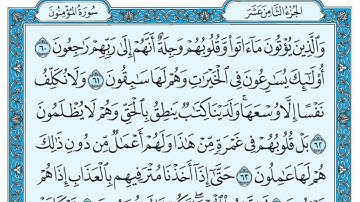 سُورَةُ المُؤْمِنُونَ
الجُزْءُ الثَّامِنَ عَشَرَ
وَالَّذِينَ يُؤْتُونَ مَا آتَوا وَّقُلُوبُهُمْ وَجِلَةٌ أَنَّهُمْ إِلَىٰ رَبِّهِمْ رَاجِعُونَ ٦٠
أُولَٰئِكَ يُسَارِعُونَ فِي الْخَيْرَاتِ وَهُمْ لَهَا سَابِقُونَ ٦١ وَلَا نُكَلِّفُ
نَفْسًا إِلَّا وُسْعَهَا ۖ وَلَدَيْنَا كِتَابٌ يَنطِقُ بِالْحَقِّ وَهُمْ لَا يُظْلَمُونَ
٦٢ بَلْ قُلُوبُهُمْ فِي غَمْرَةٍ مِّنْ هَٰذَا وَلَهُمْ أَعْمَالٌ مِّن دُونِ ذَٰلِكَ
هُمْ لَهَا عَامِلُونَ ٦٣ حَتَّىٰ إِذَا أَخَذْنَا مُتْرَفِيهِم بِالْعَذَابِ إِذَا هُمْ